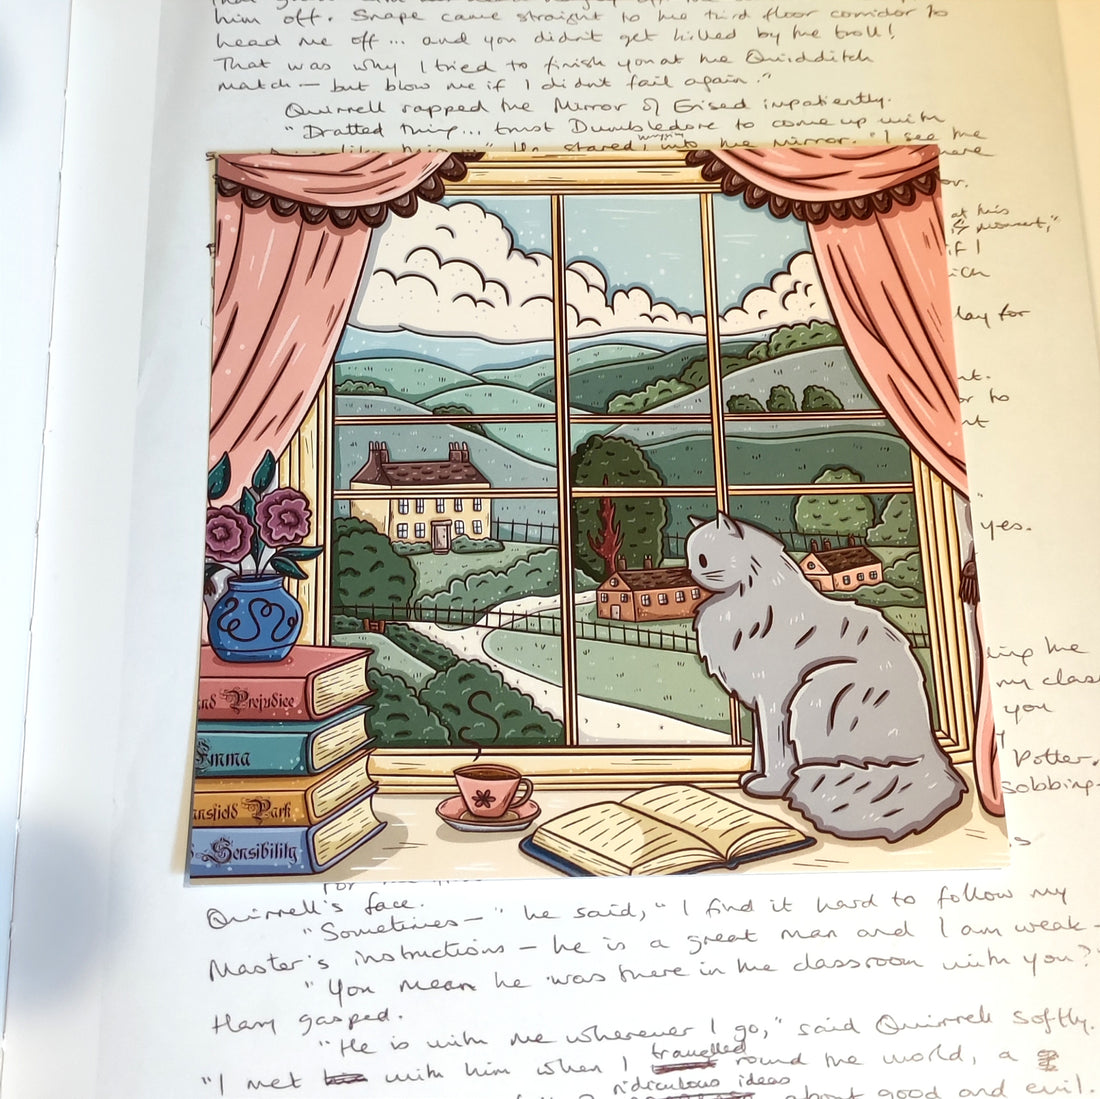 him off. Snape came straight to the third floor corridor to
head me off... and you didn't get killed by the troll!
That was why I tried to finish you at the Quidditch
match — but blow me if I didn't fail again."
Quirrell rapped the Mirror of Erised impatiently.
"Dratted thing... trust Dumbledore to come up with
like this..." He stared into the mirror. "I see the
at his
moment,"
if I
lay for
or to
yes.
my class
you
Potter.
sobbing
nd Prejudice
Emma
nsfield Park
Sensibility
Quirrell's face.
"Sometimes—" he said, "I find it hard to follow my
Master's instructions — he is a great man and I am weak—
"You mean he was there in the classroom with you?"
Harry gasped.
"He is with me wherever I go," said Quirrell softly.
travelled
"I met with him when I round the world, a
ridiculous ideas
about good and evil.